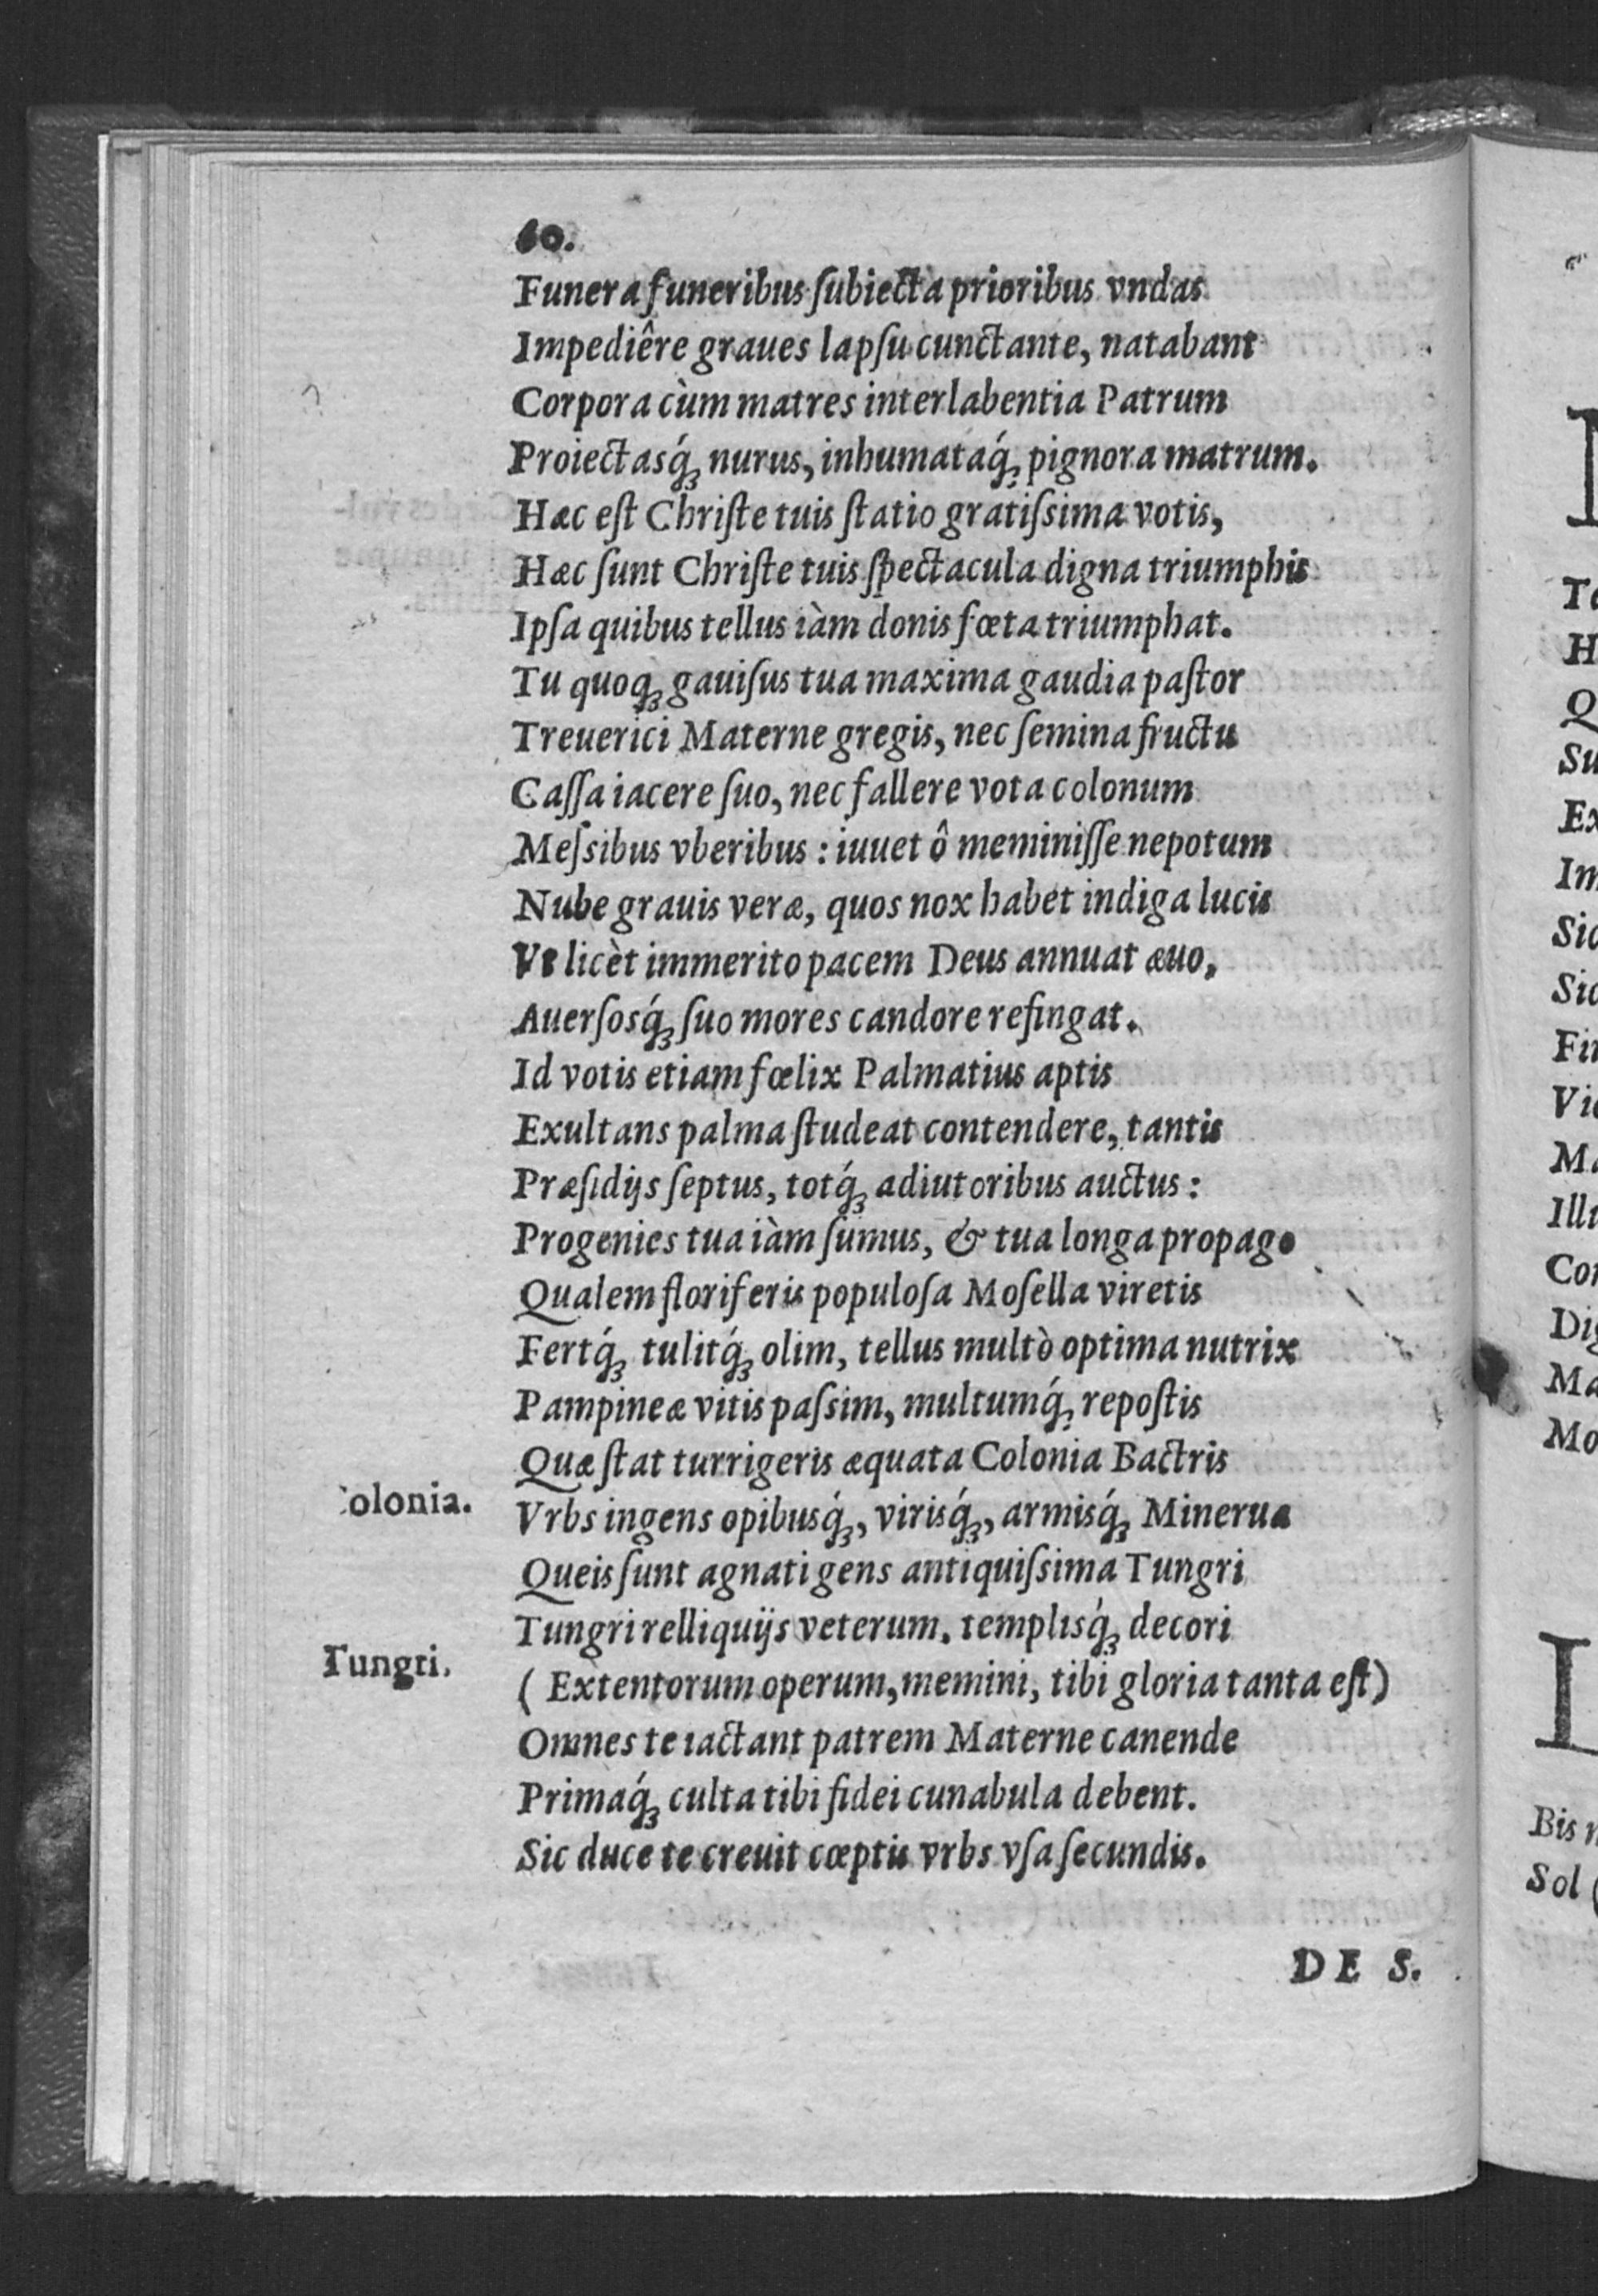 60.
Funera funeribus ſubiecta prioribus vndas
Impediêre graues lapſu cunctante, natabant
Corpora cùm matres interlabentia Patrum
Proiectasq́ꝫ nurus, inhumataq́ꝫ pignora matrum.
Hæc eſt Chriſte tuis ſtatio gratiſsima votis,
Hæc ſunt Chriſte tuis ſpectacula digna triumphis
Ipſa quibus tellus iàm donis fœta triumphat.
Tu quoqꝫ gauiſus tua maxima gaudia paſtor
Treuerici Materne gregis, nec ſemina fructu
Caſſa iacere ſuo, nec fallere vota colonum
Meſsibus vberibus: iuuet ô meminiſſe nepotum
Nube grauis veræ, quos nox habet indiga lucis
Vt licèt immerito pacem Deus annuat æuo,
Auerſosq́ꝫ ſuo mores candore refingat.
Id votis etiam fœlix Palmatius aptis
Exultans palma ſtudeat contendere, tantis
Præſidijs ſeptus, totq́ꝫ adiutoribus auctus:
Progenies tua iàm ſumus, & tua longa propago
Qualem floriferis populoſa Moſella viretis
Fertq́ꝫ tulitq́ꝫ olim, tellus multò optima nutrix
Pampineæ vitis paſsim, multumq́ꝫ repoſtis
Quæ ſtat turrigeris æquata Colonia Bactris
olonia.
Vrbs ingens opibusq́ꝫ, virisq́ꝫ, armisq́ꝫ Minerua
Queis ſunt agnati gens antiquiſsima Tungri
Tungri relliquijs veterum, templisq́ꝫ decori
Tungri.
(Extentorum operum, memini, tibi gloria tanta eſt)
Omnes te iactant patrem Materne canende
Primaq́ꝫ culta tibi fidei cunabula debent.
Sic duce te creuit cœptis vrbs vſa ſecundis.
DE S.
T
H
Q
Su
Ex
Im
Sic
Sic
Fin
Vi
Ma
Illu
Con
Dig
Ma
Mo
L
Bis
Sol (